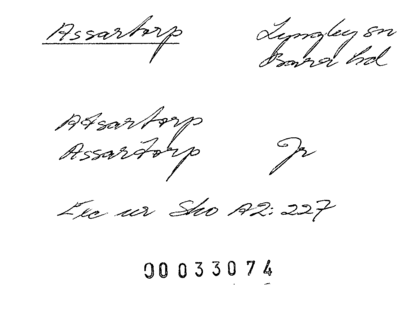 Assartorp Lyngby sn
Bara hd
Atsartorp
Assartorp Jr
Exc ur Sko A2: 227
00033074